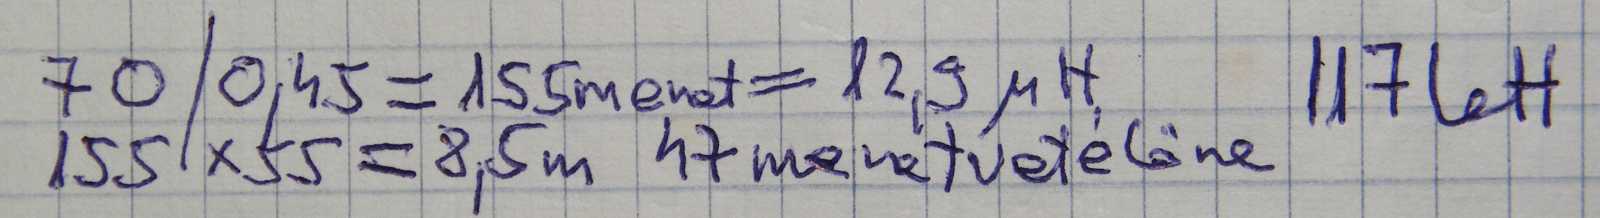 70/0,45=155menet=12,9 μH 117 lett
155x55=8,5m 47menetvetélőne